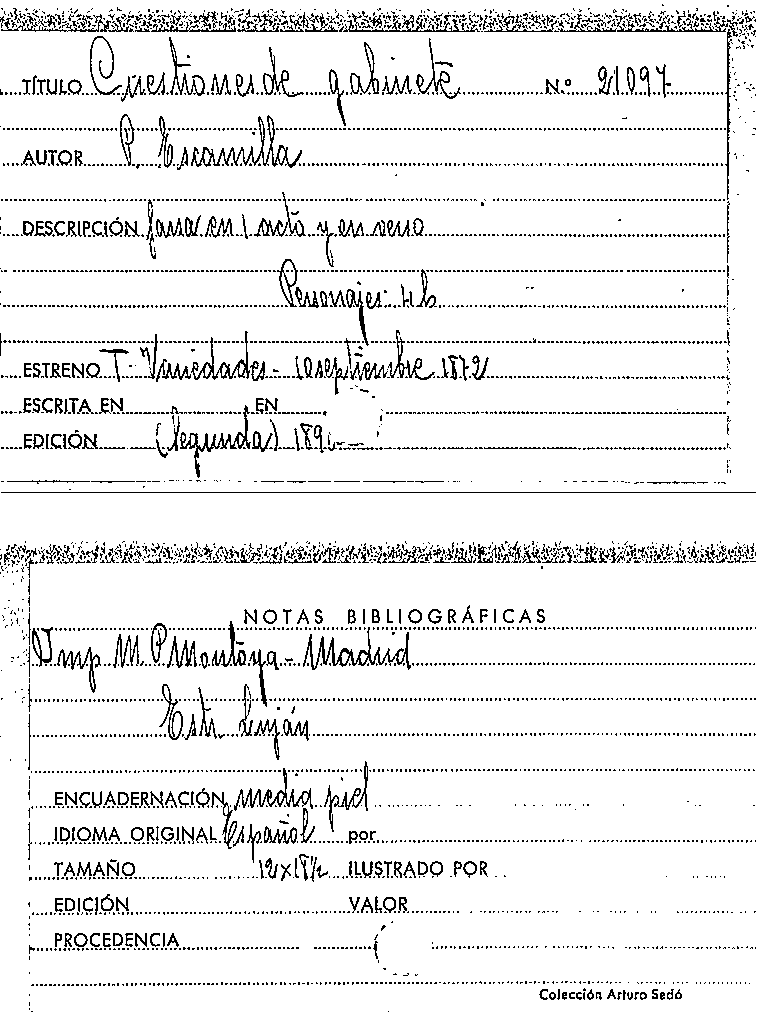 TÍTULO Cuestiones de gabinete N.º 21097
AUTOR P. Escamilla
DESCRIPCIÓN farsa en 1 acto y en verso
Personajes: 4 h.
ESTRENO T. Variedades - 10 septiembre 1872
ESCRITA EN EN
EDICIÓN (Segunda) 189
NOTAS BIBLIOGRÁFICAS
Imp M. P. Montoya - Madrid
Estr. Luján
ENCUADERNACIÓN media piel
IDIOMA ORIGINAL Español por
TAMAÑO 12x18½ ILUSTRADO POR
EDICIÓN VALOR
PROCEDENCIA
Colección Arturo Sedó